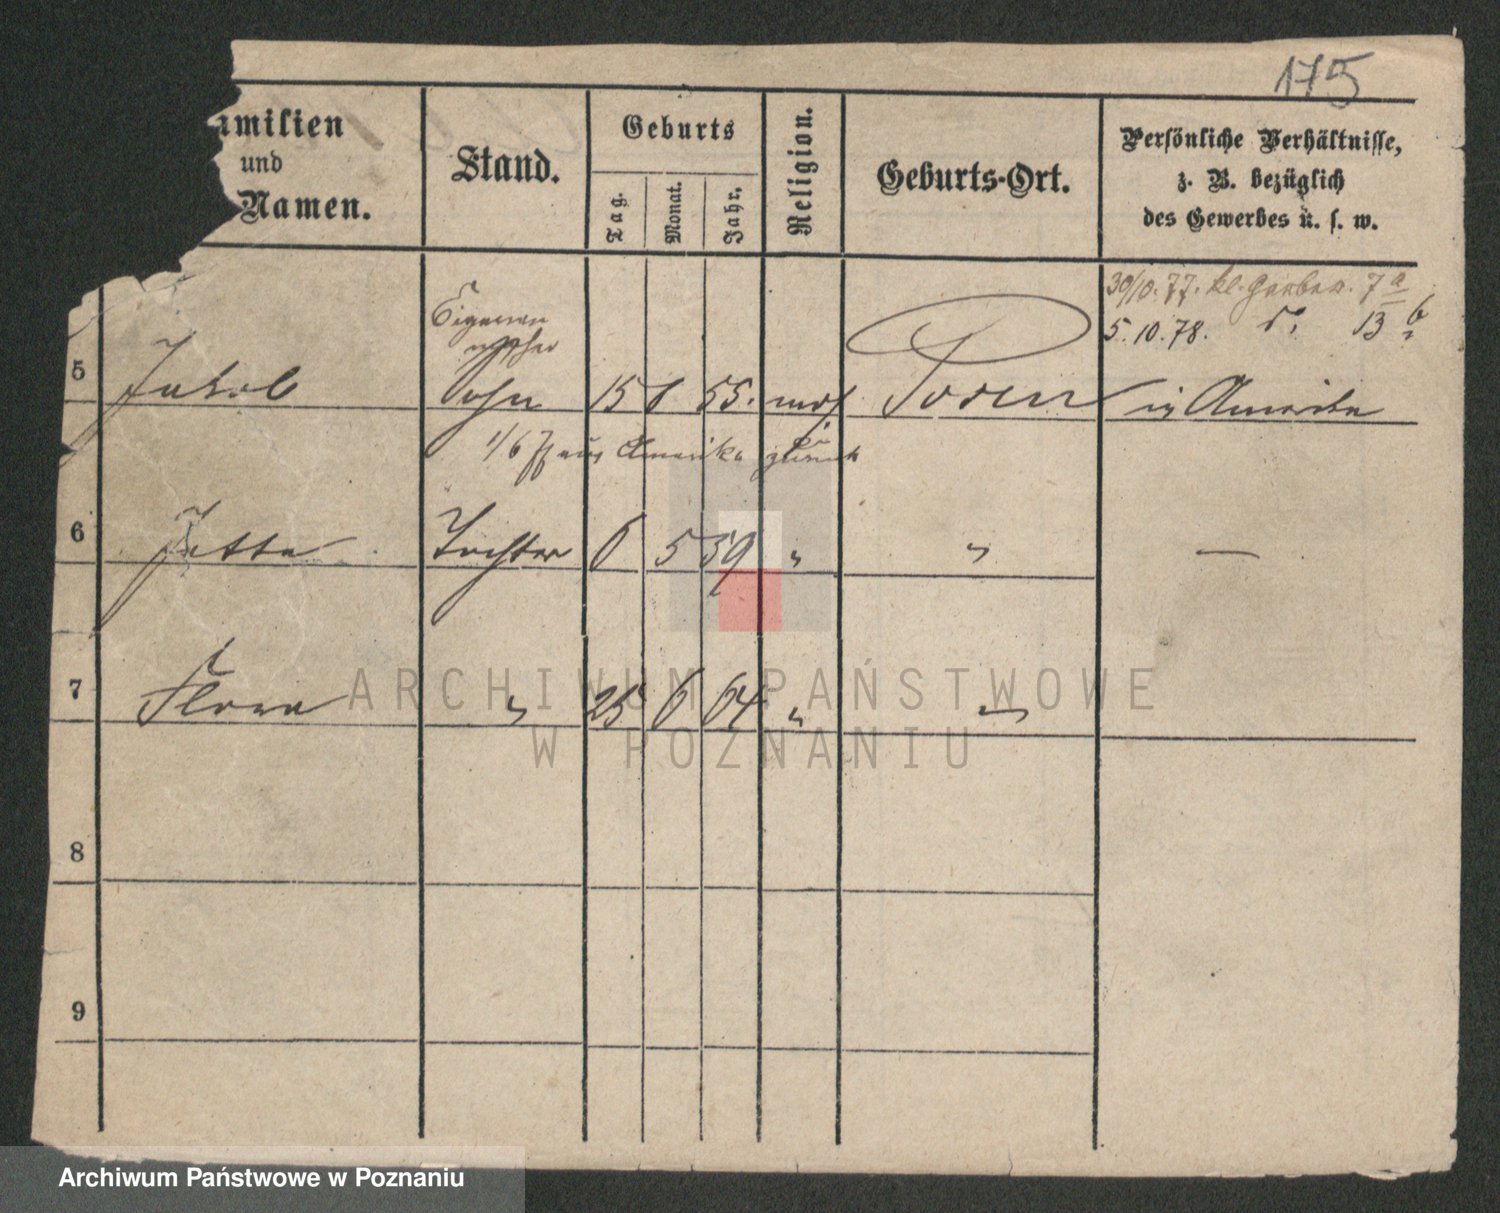 175
amilien
und
Namen.
Stand.
Geburts
Tag.
Monat.
Jahr.
Religion.
Geburts-Ort.
Persönliche Verhältnisse,
z. B. bezüglich
des Gewerbes u. s. w.
30/10. 77. kl. Gerber. 7 a
5. 10. 78. do. 13 b
5 Jakob Sohn 15 8 55. mos. Posen in Amerika
1/6 77 aus Amerika zurück
6 Jette Tochter 6 5 59 " " —
7 Flora " 25 6 64 " "
8
9
ARCHIWUM PAŃSTWOWE
W POZNANIU
Archiwum Państwowe w Poznaniu